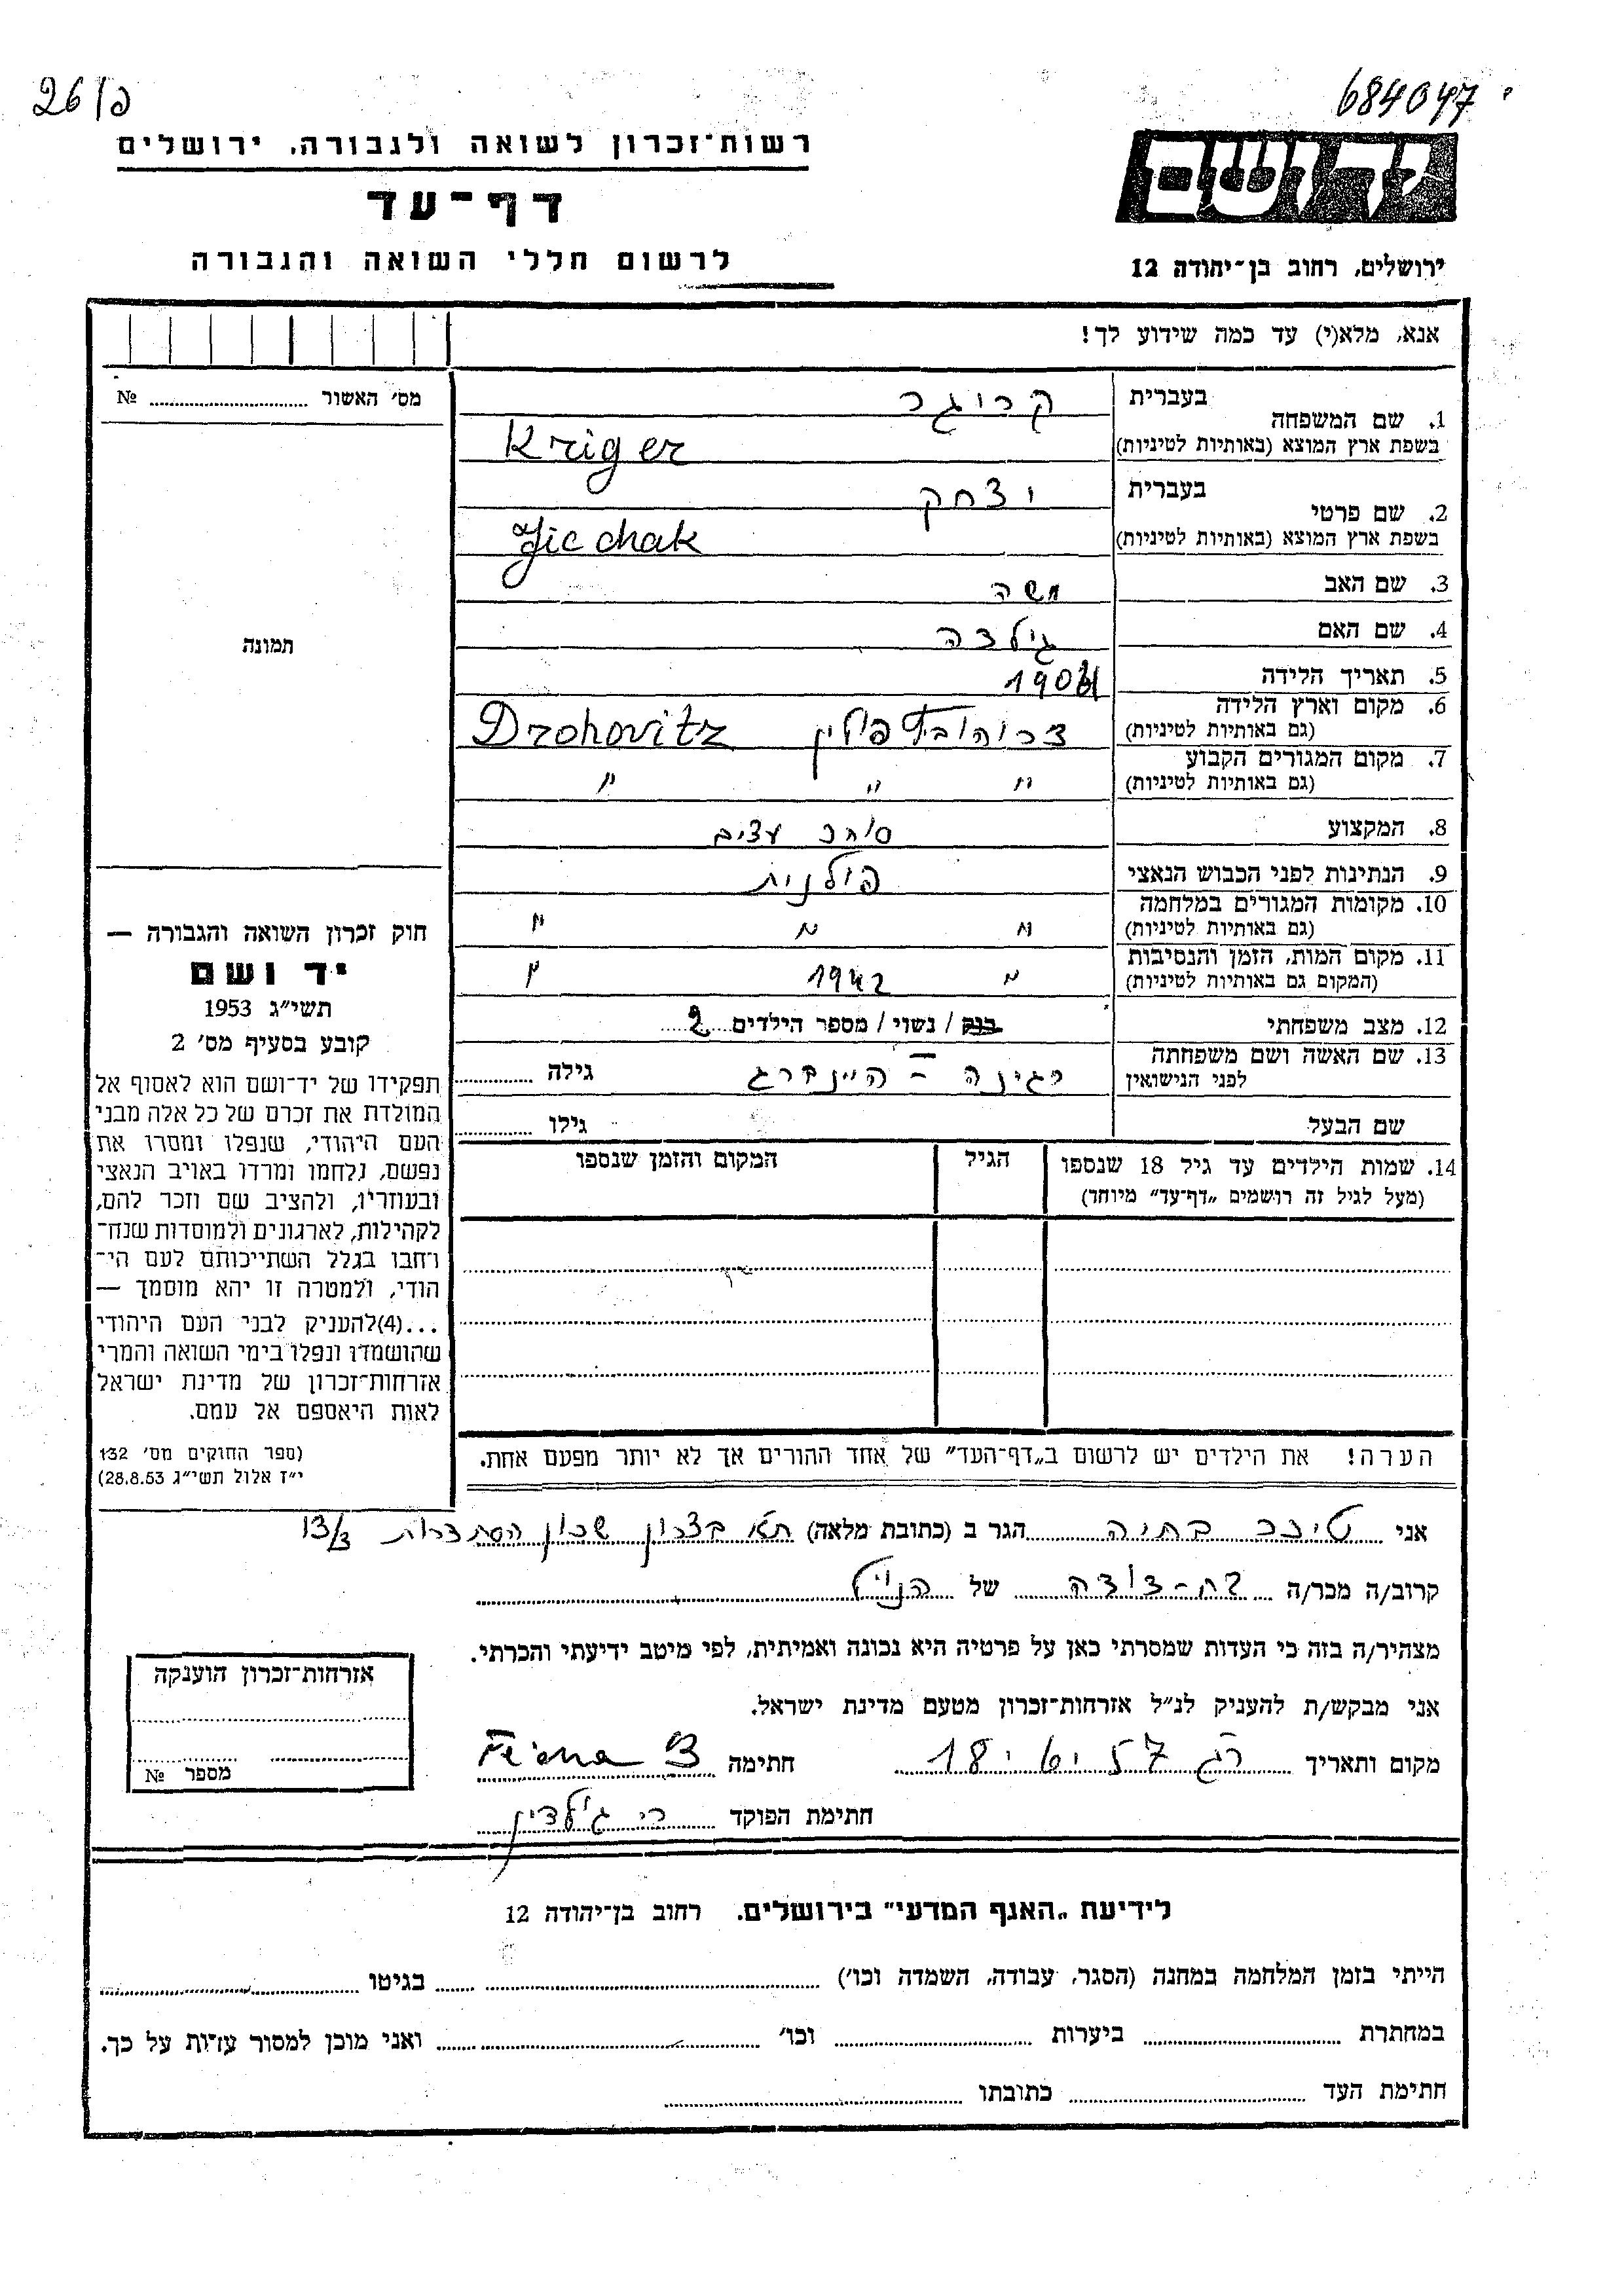 684047
26/פ
יד ושם
ירושלים, רחוב בן־יהודה 12
רשות־זכרון לשואה ולגבורה, ירושלים
דף־עד
לרשום חללי השואה והגבורה
אנא, מלא(י) עד כמה שידוע לך!
מס' האשור № 
תמונה
1. שם המשפחה בעברית קרוגר
בשפת ארץ המוצא (באותיות לטיניות) Kriger
2. שם פרטי בעברית יצחק
בשפת ארץ המוצא (באותיות לטיניות) Jicchak
3. שם האב משה
4. שם האם גילדה
5. תאריך הלידה
6. מקום וארץ הלידה
(גם באותיות לטיניות) דרוהוביץ פולין Drohovitz
7. מקום המגורים הקבוע
(גם באותיות לטיניות) " " "
8. המקצוע סוחר עצים
9. הנתינות לפני הכבוש הנאצי פולנית
10. מקומות המגורים במלחמה
(גם באותיות לטיניות) " " "
11. מקום המות, הזמן והנסיבות
(המקום גם באותיות לטיניות) " 1942 "
12. מצב משפחתי רווק / נשוי / מספר הילדים 2
13. שם האשה ושם משפחתה
לפני הנישואין רגינה - היינברג גילה
שם הבעל גילו
14. שמות הילדים עד גיל 18 שנספו הגיל המקום והזמן שנספו
(מעל לגיל זה רושמים „דף־עד" מיוחד)
הערה! את הילדים יש לרשום ב„דף־העד" של אחד ההורים אך לא יותר מפעם אחת.
חוק זכרון השואה והגבורה —
יד ושם
תשי"ג 1953
קובע בסעיף מס' 2
תפקידו של יד־ושם הוא לאסוף אל
המולדת את זכרם של כל אלה מבני
העם היהודי, שנפלו ומסרו את
נפשם, נלחמו ומרדו באויב הנאצי
ובעוזריו, ולהציב שם וזכר להם,
לקהילות, לארגונים ולמוסדות שנח־
רחבו בגלל השתייכותם לעם הי־
הודי, ולמטרה זו יהא מוסמך —
...(4)להעניק לבני העם היהודי
שהושמדו ונפלו בימי השואה והמרי
אזרחות־זכרון של מדינת ישראל
לאות היאספם אל עמם.
(ספר החוקים מס' 132
י"ז אלול תשי"ג 28.8.53)
אני טינר בתיה הגר ב (כתובת מלאה) ת"א בצרון שכון הסתדרות 13/3
קרוב/ה מכר/ה בת-דודה של הנ"ל
מצהיר/ה בזה כי העדות שמסרתי כאן על פרטיה היא נכונה ואמיתית, לפי מיטב ידיעתי והכרתי.
אני מבקש/ת להעניק לנ"ל אזרחות־זכרון מטעם מדינת ישראל.
מקום ותאריך חתימה
חתימת הפוקד
אזרחות־זכרון הוענקה
מספר №
לידיעת „האגף המדעי" בירושלים. רחוב בן־יהודה 12
הייתי בזמן המלחמה במחנה (הסגר, עבודה, השמדה וכו') בגיטו
במחתרת ביערות וכו' ואני מוכן למסור עדות על כך.
חתימת העד כתובתו